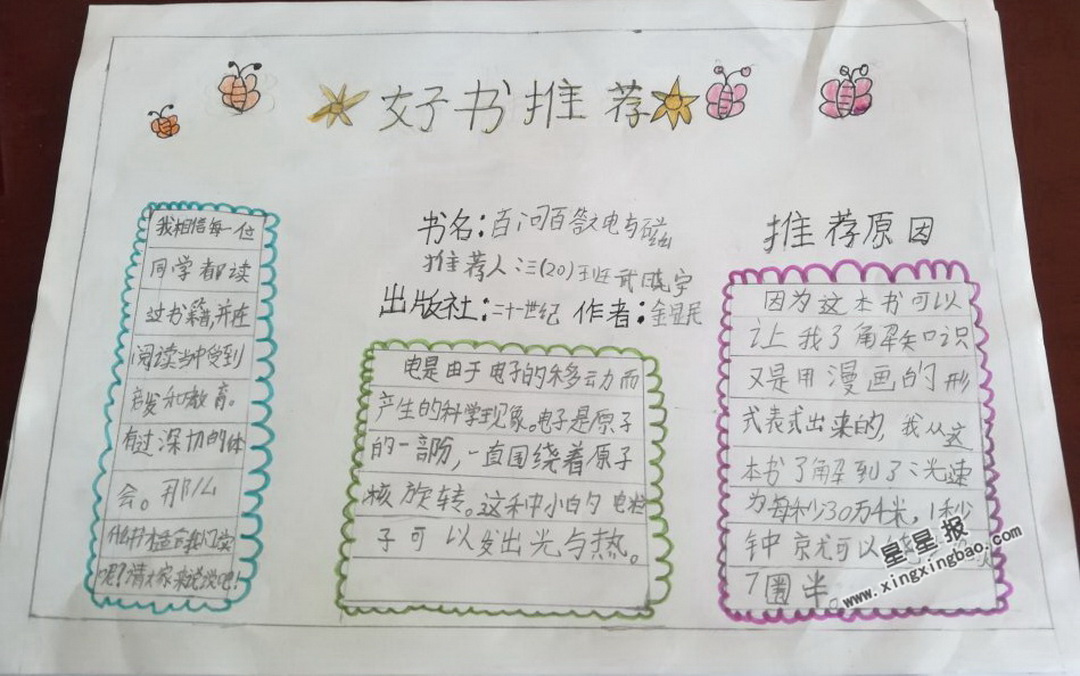 好书推荐
我相信每一位
同学都读
过书籍,并在
阅读当中受到
启发和教育。
有过深切的体
会。那么
什么书适合我们读
呢?请大家来说说吧!
书名:百问百答电与磁
推荐人:三(20)班武宇
出版社:二十一世纪 作者:金显民
电是由于电子的移动力而
产生的科学现象。电子是原子
的一部份,一直围绕着原子
核旋转。这种小的电粒
子可以发出光与热。
推荐原因
因为这本书可以
让我了解知识
又是用漫画的形
式表式出来的,我从这
本书了解到了光速
为每秒30万千米,1秒
钟竟尤可以绕
7圈半。
星星报
www.xingxingbao.com